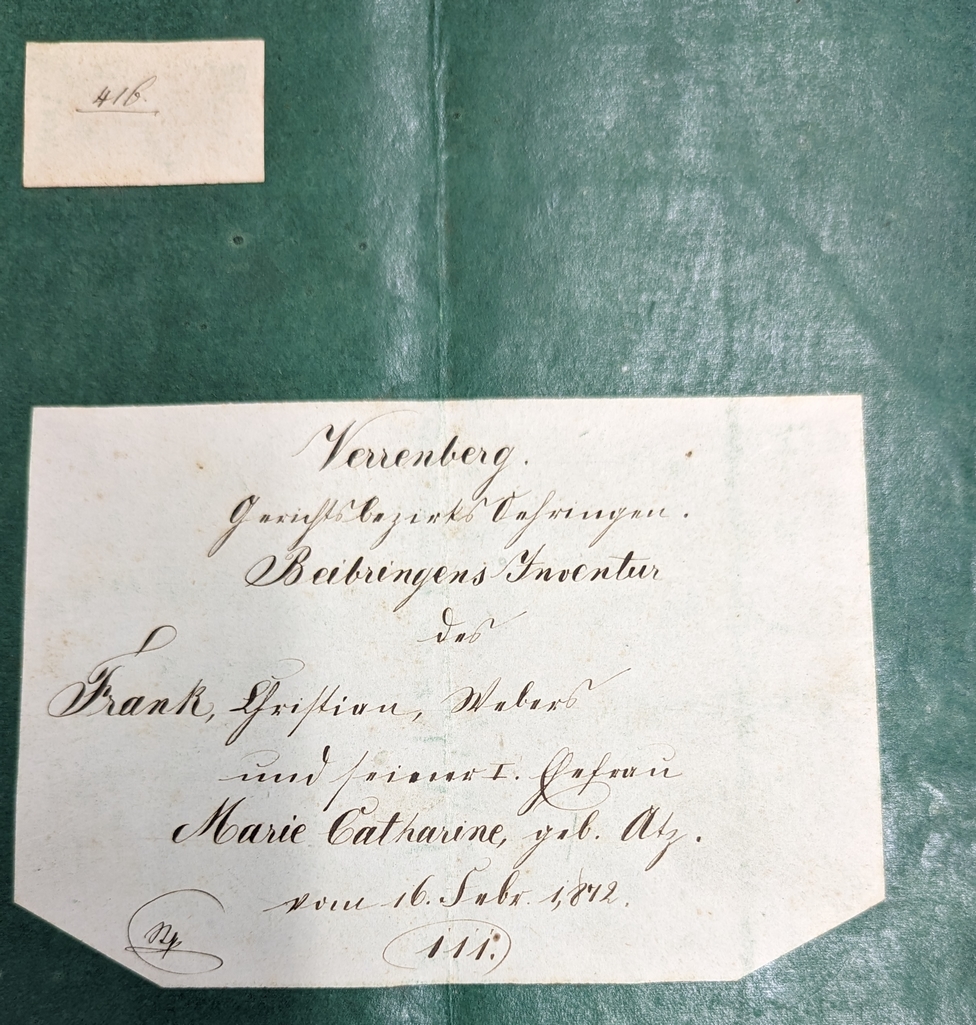 416.
Verrenberg.
Gerichtsbezirks Oehringen.
Beibringens Inventur
des
Frank, Christian, Webers
und seiner I. Ehefrau
Marie Catharine, geb. Atz.
vom 16. Febr. 1,872.
111.